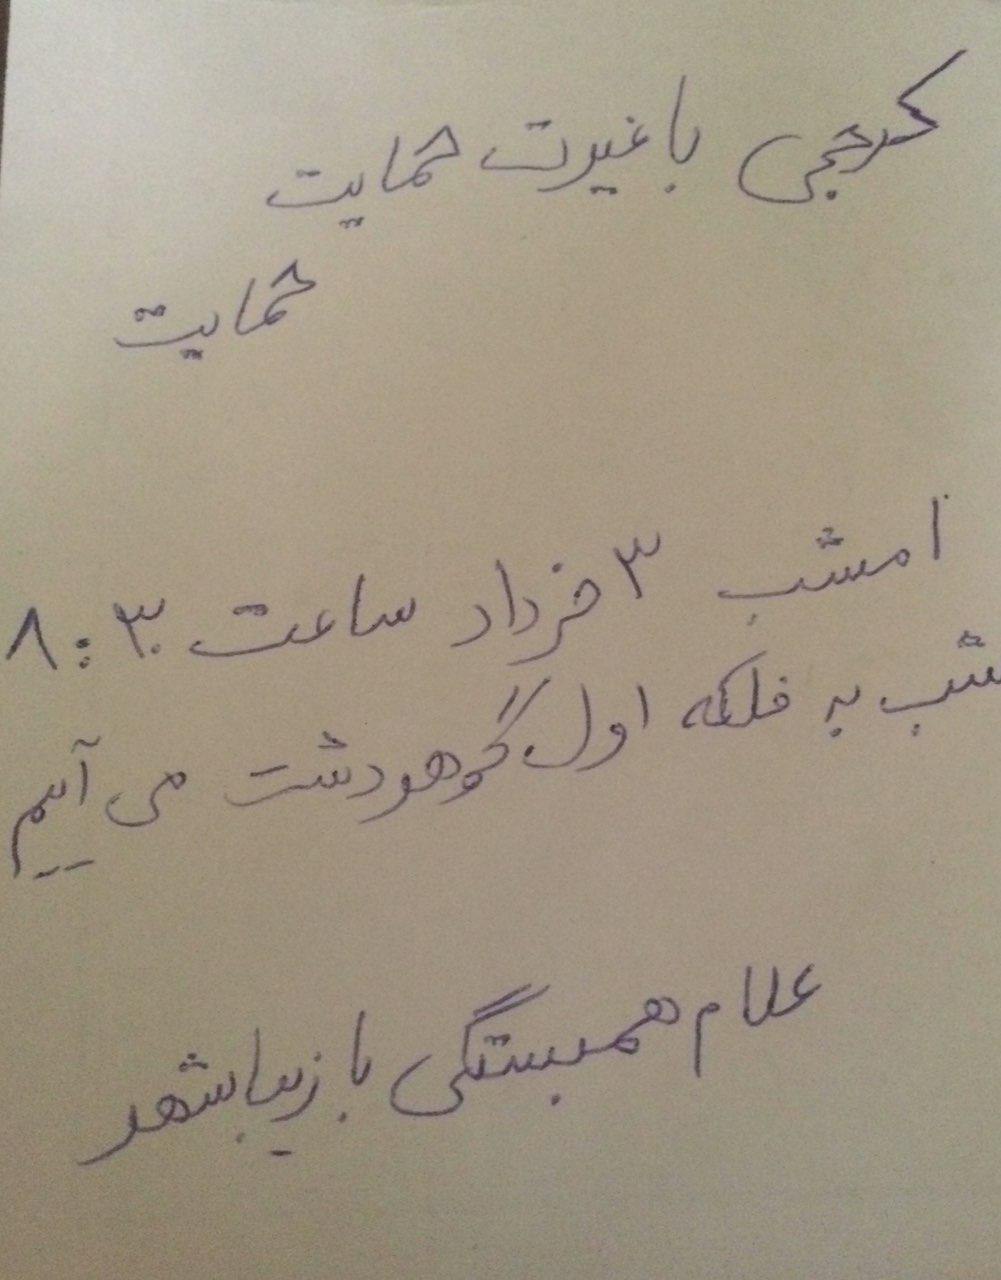 کرجی باغیرت حمایت
حمایت
امشب ۳ خرداد ساعت ۸:۳۰
شب به فلکه اول گوهردشت می آییم
علام همبستگی با زیباشهر